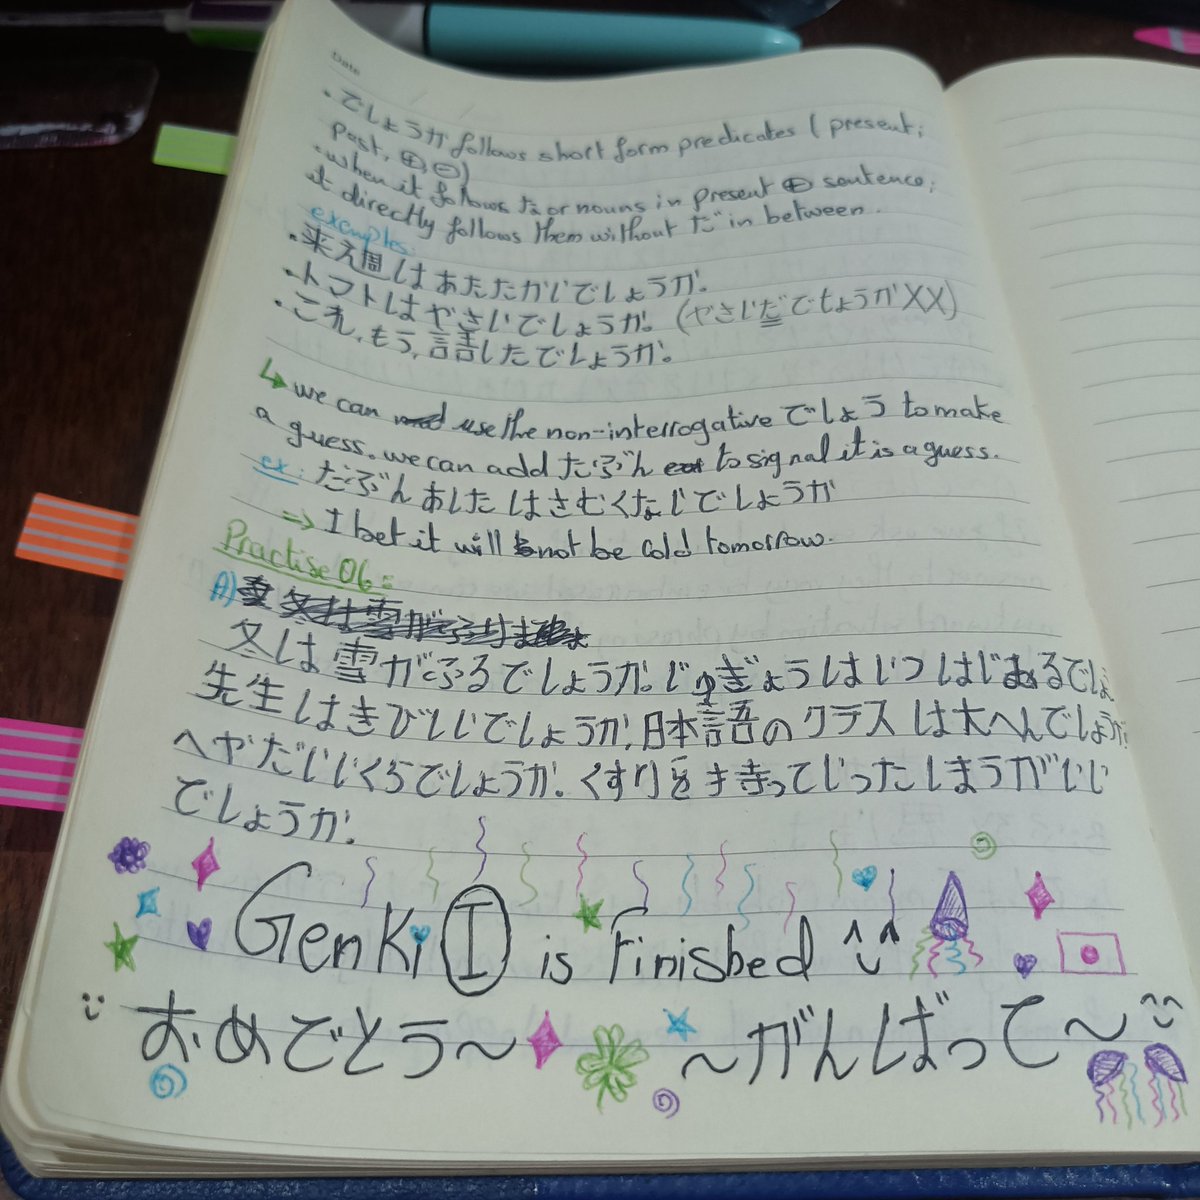 Date
・でしょうか follows short form predicates (present;
past, ⊕,⊖)
・when it follows な or nouns in present ⊕ sentence;
it directly follows them without だ in between.
examples:
・来週はあたたかいでしょうか。
・トマトはやさいでしょうか。(やさいだでしょうかXX)
・これ,もう,話したでしょうか。
↳ we can use the non-interrogative でしょう to make
a guess. we can add たぶん to signal it is a guess.
ex: たぶんあしたはさむくないでしょうか
⇒ I bet it will not be cold tomorrow.
Practise 06:
A)
冬は雪がふるでしょうか。じゅぎょうはいつはじまるでしょ
先生はきびしいでしょうか。日本語のクラスは大へんでしょうか。
へやだいじくらでしょうか。くすりを持っていったほうがいい
でしょうか。
Genki I is Finished ^‿^
おめでとう〜
〜がんばって〜